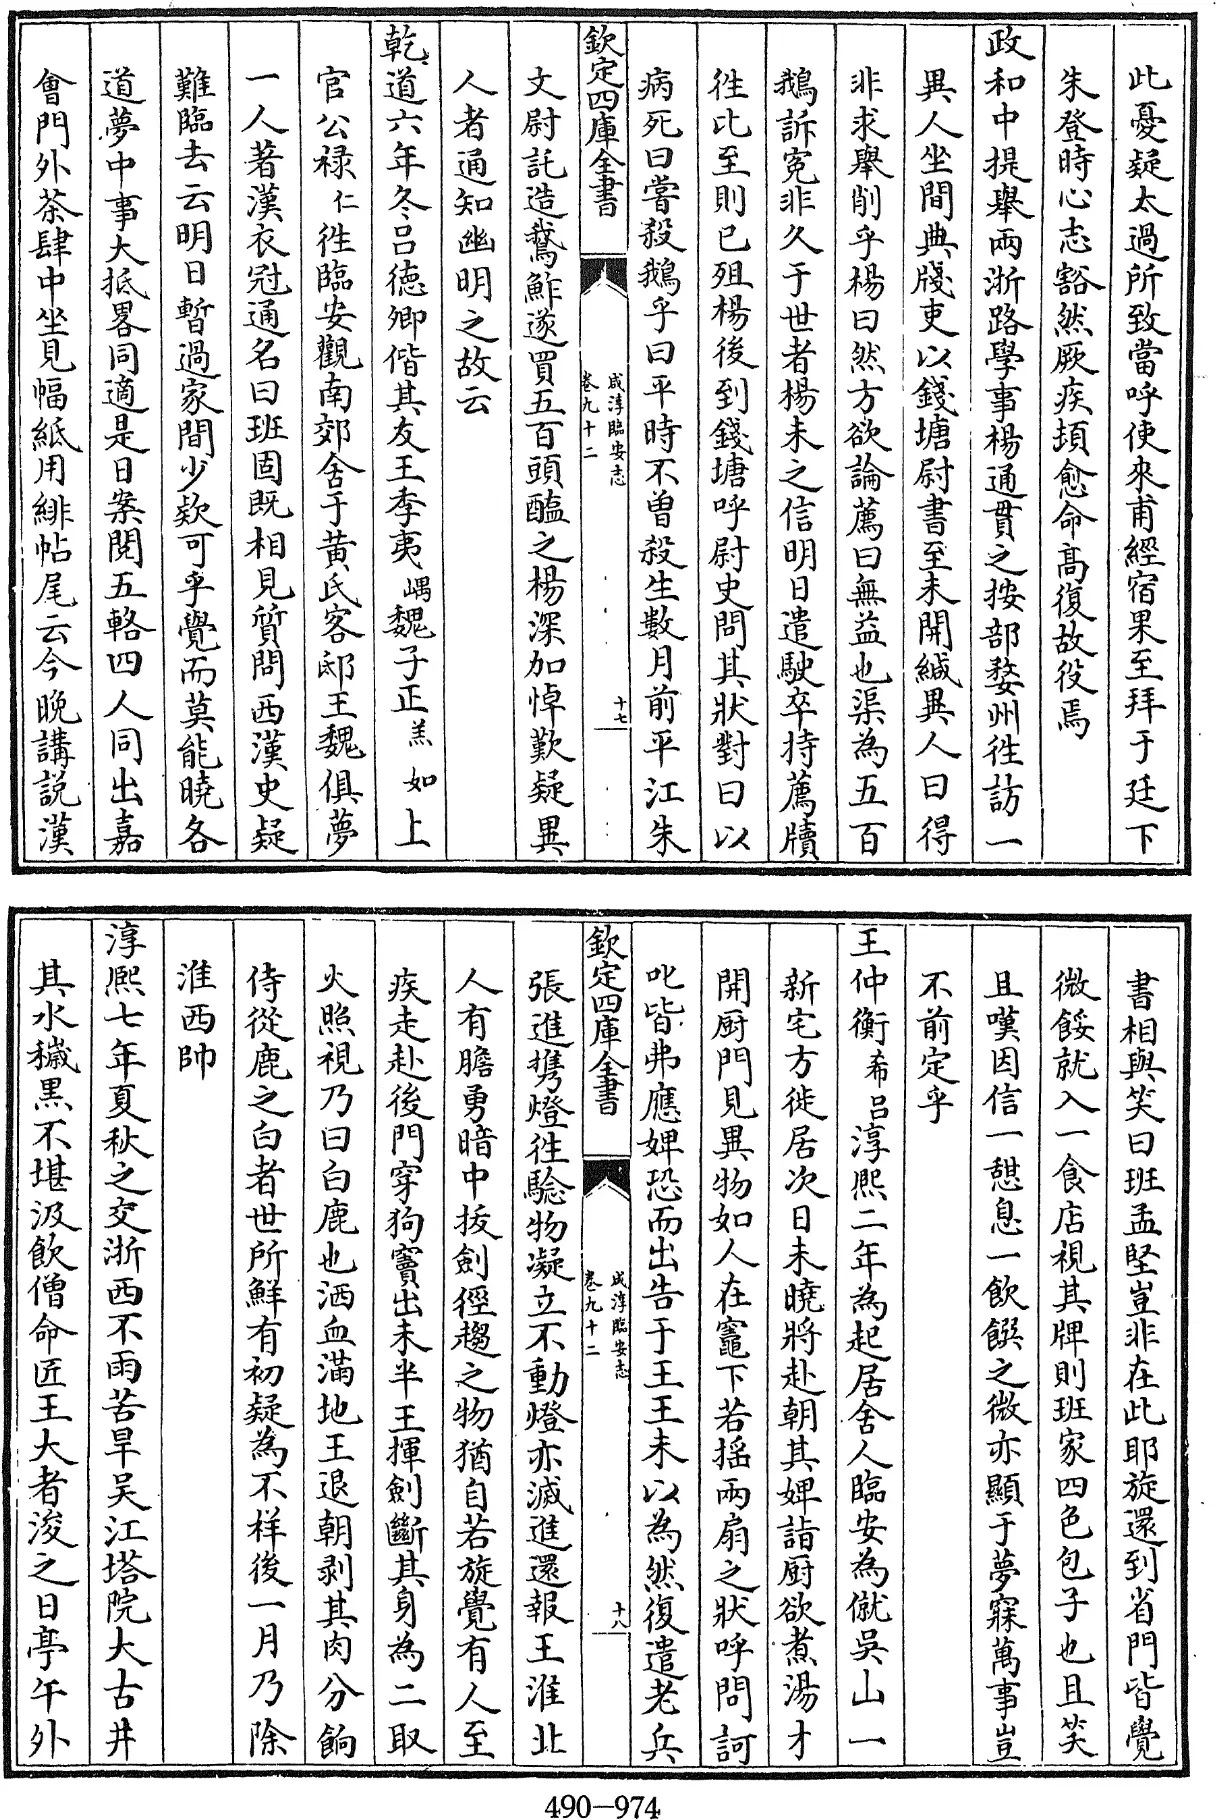 此憂疑太過所致當呼使來甫經宿果至拜于廷下
朱登時心志豁然厥疾頓愈命髙復故役焉
政和中提舉兩浙路學事楊通貫之按部婺州徃訪一
異人坐間典牋吏以錢塘尉書至未開緘異人曰得
非求舉削乎楊曰然方欲論薦曰無益也渠為五百
鵝訴寃非久于世者楊未之信明日遣駛卒持薦牘
徃比至則已殂楊後到錢塘呼尉史問其狀對曰以
病死曰嘗殺鵝乎曰平時不曾殺生數月前平江朱
欽定四庫全書
咸淳臨安志
卷九十二
十七
文尉託造鵞鮓遂買五百頭醢之楊深加悼歎疑異
人者通知幽明之故云
乾道六年冬吕德卿偕其友王季夷嵎魏子正羔如上
官公禄仁徃臨安觀南郊舍于黄氏客邸王魏俱夢
一人著漢衣冠通名曰班固既相見質問西漢史疑
難臨去云明日暫過家間少欵可乎覺而莫能曉各
道夢中事大抵畧同適是日案閱五輅四人同出嘉
會門外茶肆中坐見幅紙用緋帖尾云今晚講説漢
書相與笑曰班孟堅豈非在此耶旋還到省門皆覺
微餒就入一食店視其牌則班家四色包子也且笑
且嘆因信一憇息一飲饌之微亦顯于夢寐萬事豈
不前定乎
王仲衡希吕淳熙二年為起居舍人臨安為僦吳山一
新宅方徙居次日未曉將赴朝其婢詣厨欲煮湯才
開厨門見異物如人在竈下若揺兩扇之狀呼問訶
叱皆弗應婢恐而出告于王王未以為然復遣老兵
欽定四庫全書
咸淳臨安志
卷九十二
十八
張進携燈徃驗物凝立不動燈亦滅進還報王淮北
人有膽勇暗中拔劍徑趨之物猶自若旋覺有人至
疾走赴後門穿狗竇出未半王揮劍斷其身為二取
火照視乃曰白鹿也洒血滿地王退朝剥其肉分餉
侍從鹿之白者世所鮮有初疑為不样後一月乃除
淮西帥
淳熙七年夏秋之交浙西不雨苦旱吴江塔院大古井
其水穢黒不堪汲飲僧命匠王大者浚之日亭午外
490—974